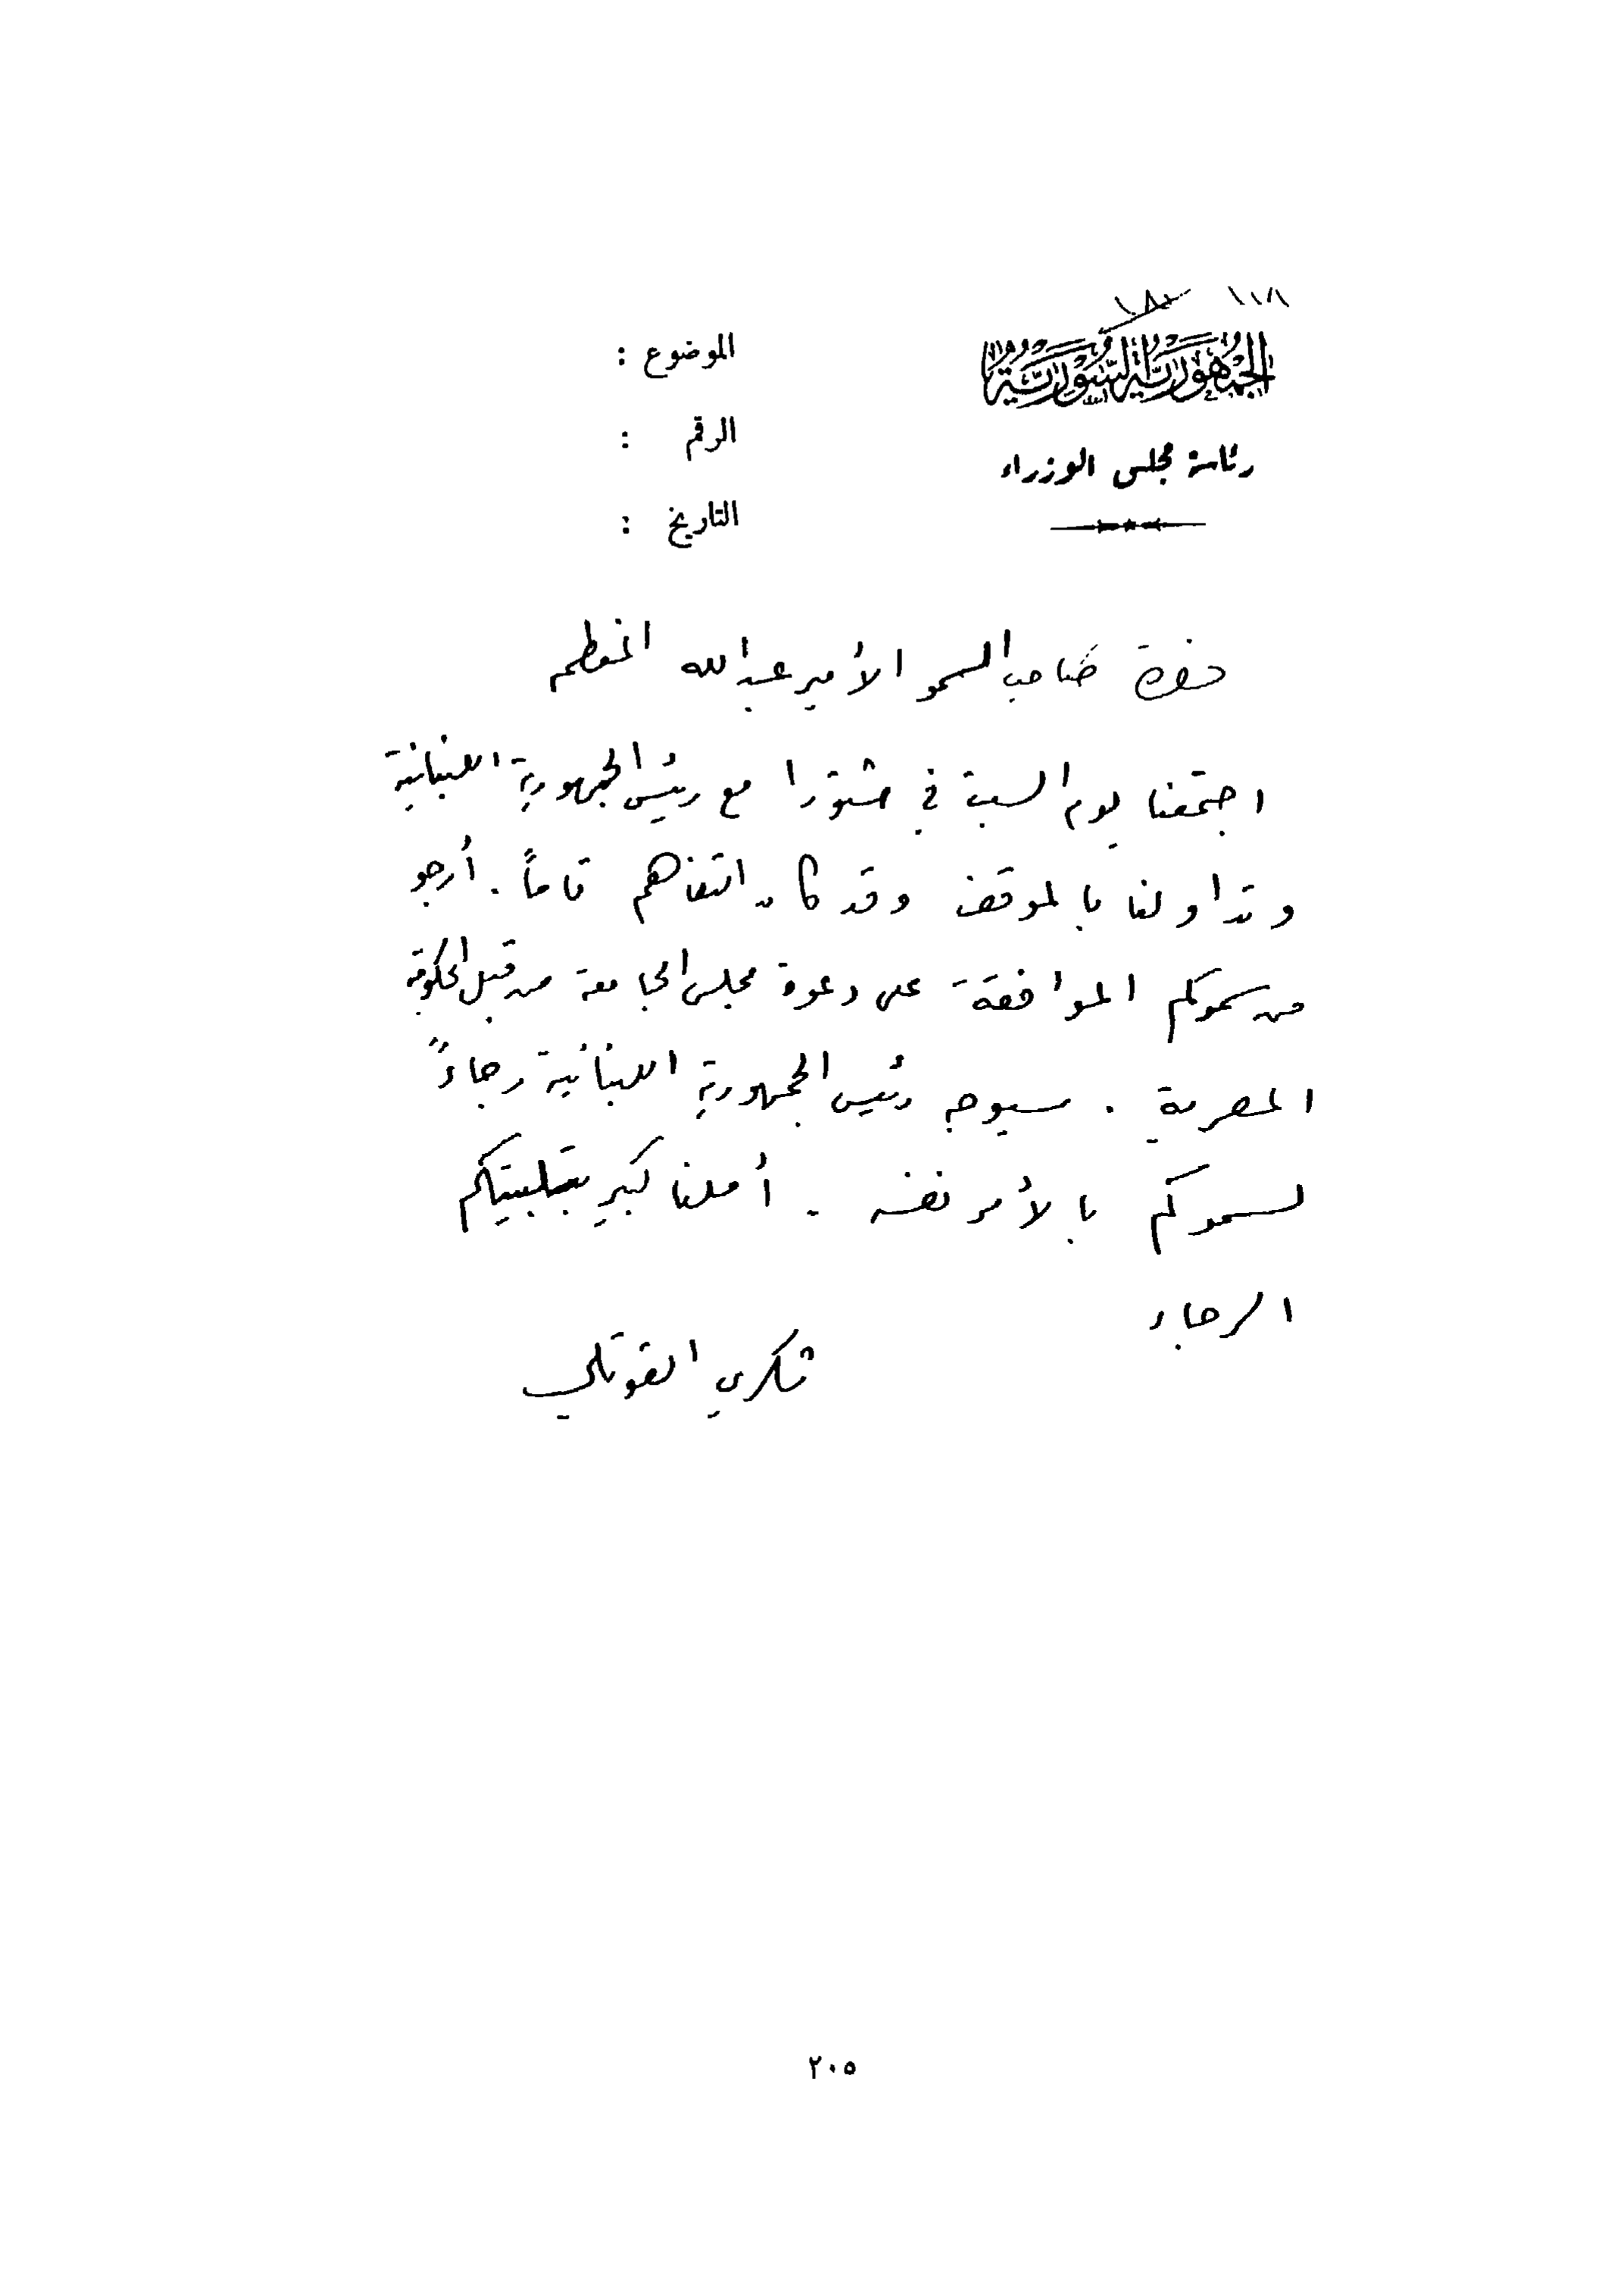 الجمهورية السورية
رئاسة مجلس الوزراء
الموضوع :
الرقم :
التاريخ :
حضرة صاحب السمو الأمير عبدالله المعظم
اجتمعنا يوم السبت في شتورا مع رئيس الجمهورية اللبنانية
وتداولنا بالموقف وقد كان التفاهم تاماً . أرجو
من سموكم الموافقة على دعوة مجلس الجامعة من قبل الحكومة
المصرية . سيوجه رئيس الجمهورية اللبنانية رجاءً
لسموكم بالأمر نفسه . أملنا كبير بتلبيتكم
الرجاء
شكري القوتلي
٢٠٥